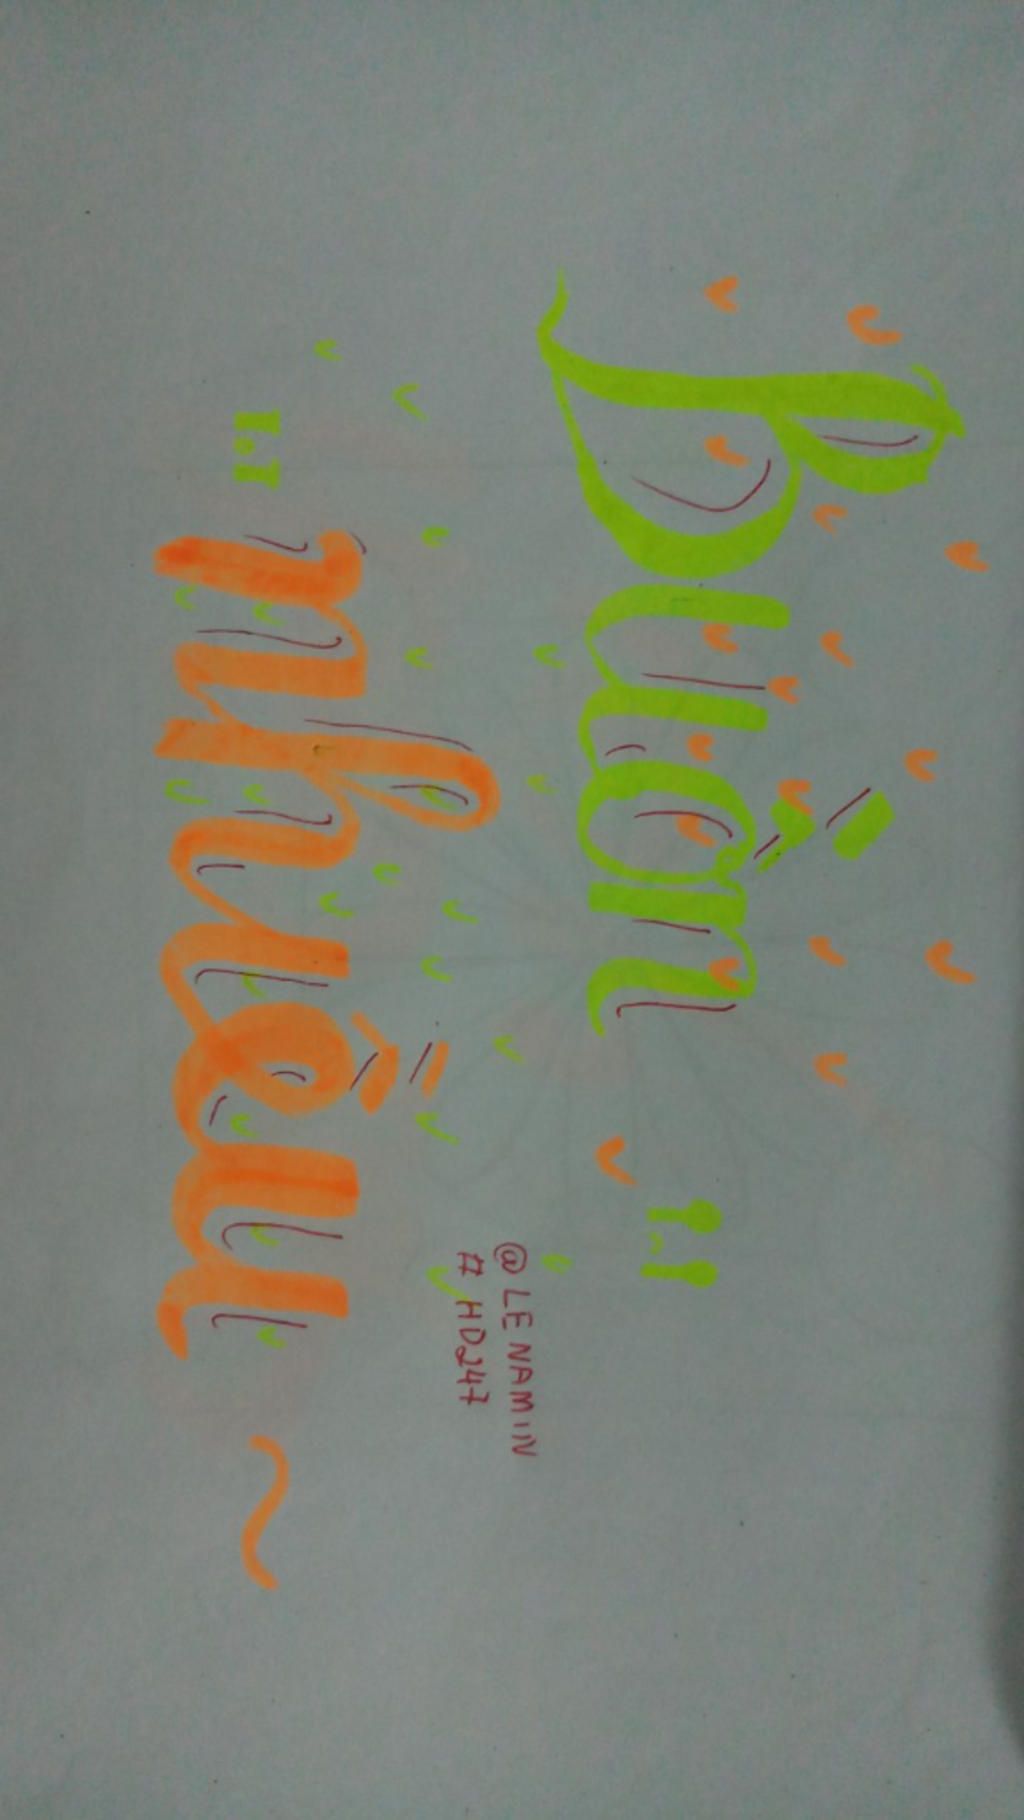 Buồn
@LENAMIN
#HD247
nhiều ~